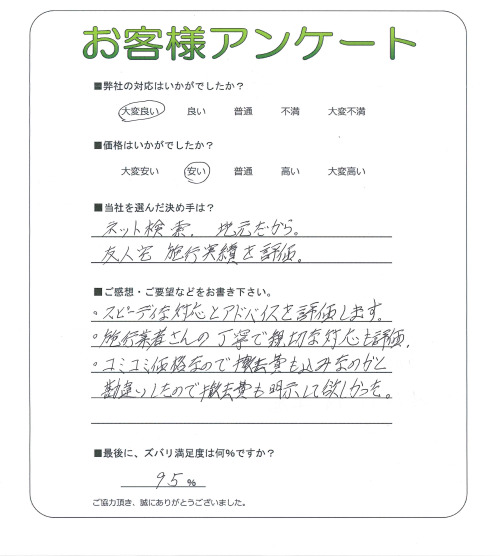 お客様アンケート
■弊社の対応はいかがでしたか？
大変良い 良い 普通 不満 大変不満
■価格はいかがでしたか？
大変安い 安い 普通 高い 大変高い
■当社を選んだ決め手は？
ネット検索. 地元だから。
友人宅 施行実績を評価。
■ご感想・ご要望などをお書き下さい。
・スピーディな対応とアドバイスを評価します。
・施行業者さんの丁寧で親切な対応も評価.
・コミコミ価格なので撤去費も込みなのかと
勘違いしたので撤去費も明示して欲しかった。
■最後に、ズバリ満足度は何％ですか？
95 %
ご協力頂き、誠にありがとうございました。